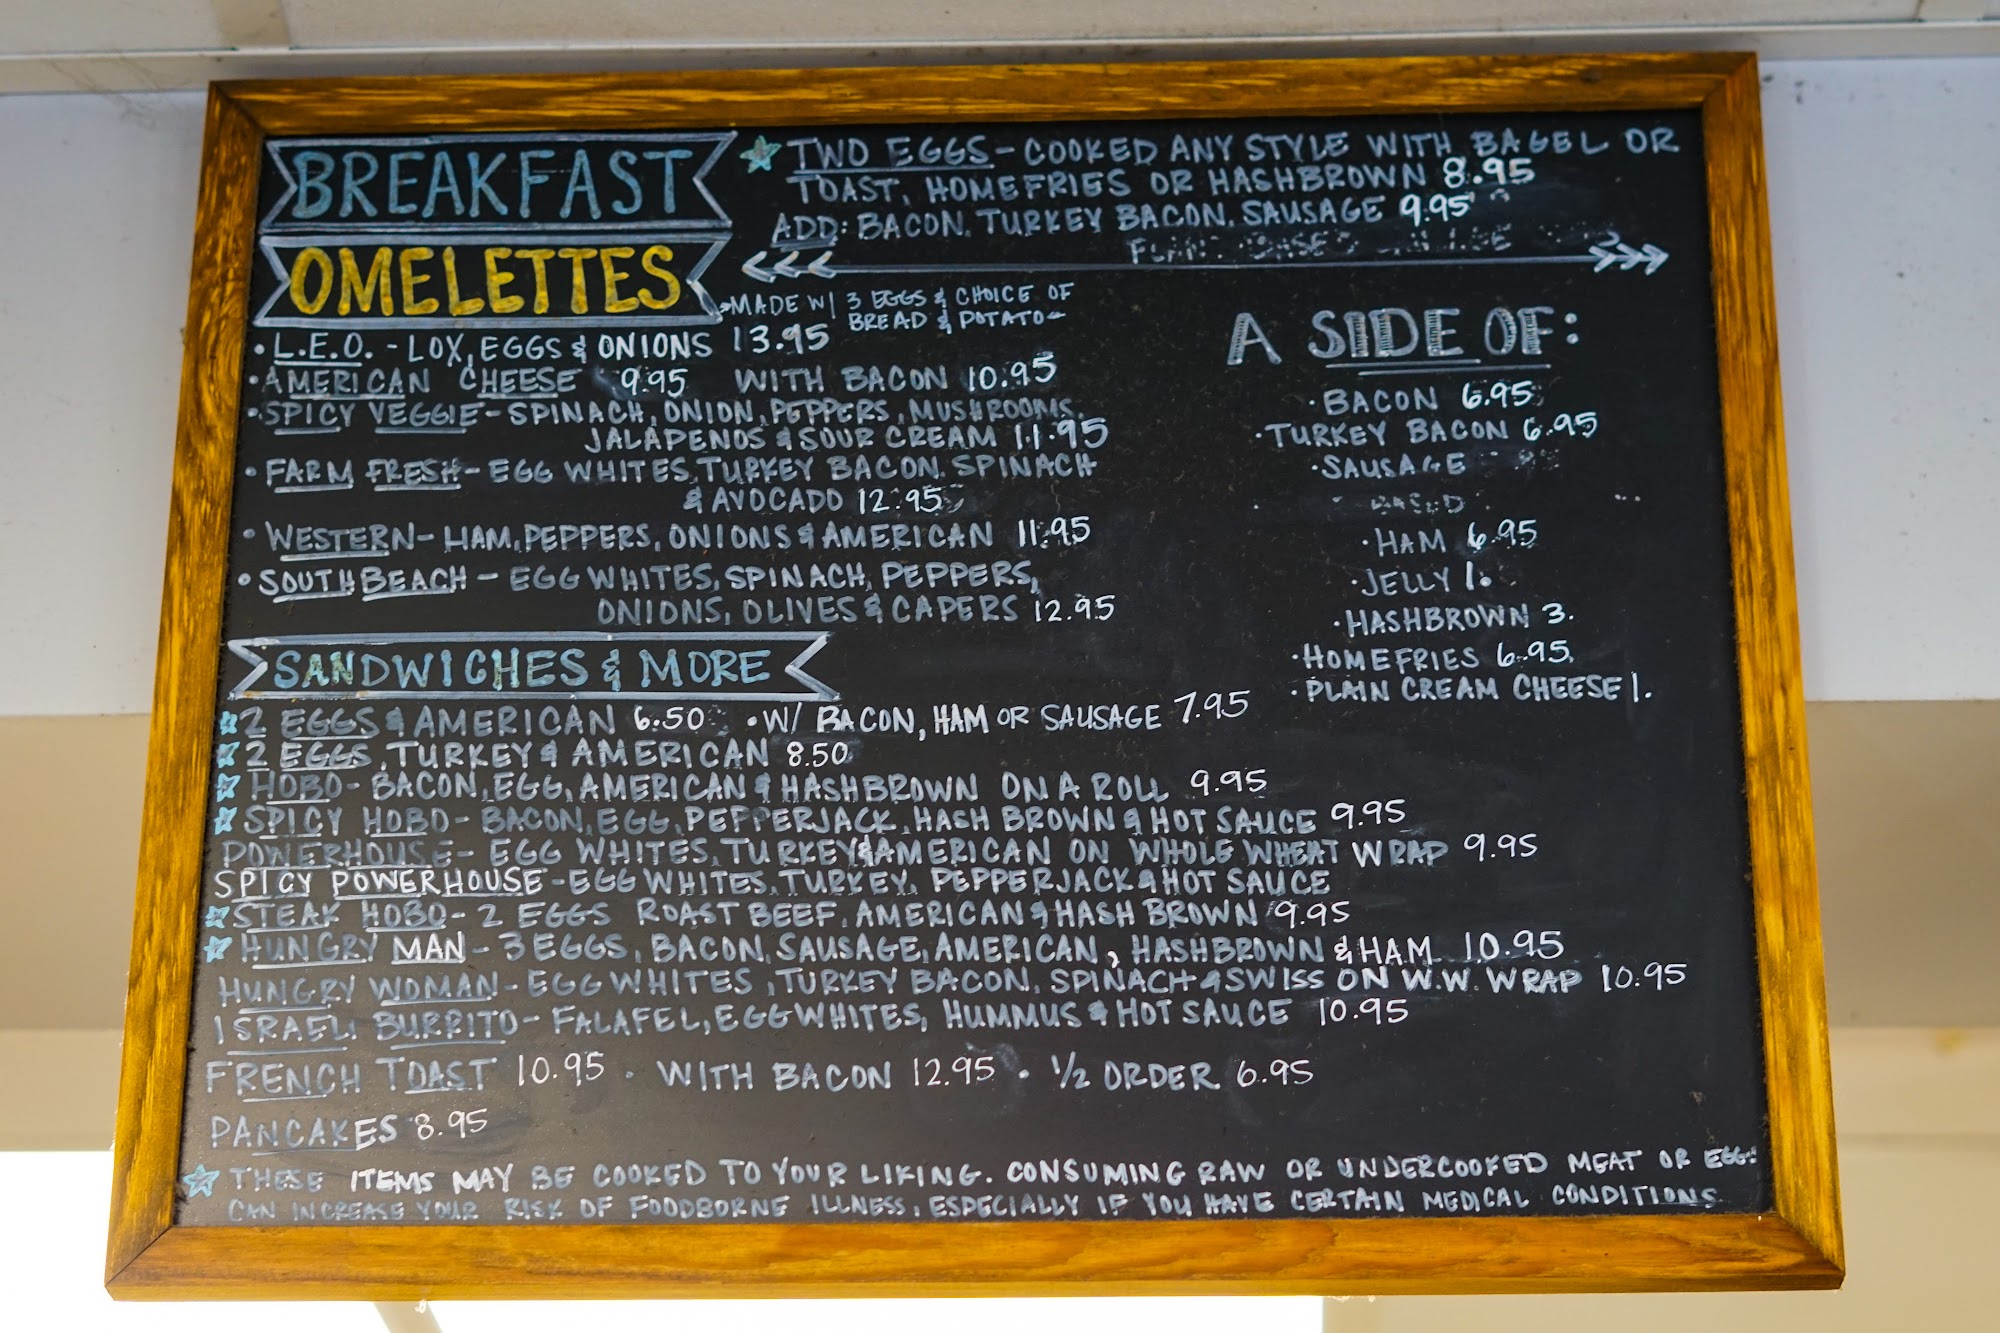 BREAKFAST
TWO EGGS - COOKED ANY STYLE WITH BAGEL OR
TOAST, HOMEFRIES OR HASHBROWN 8.95
ADD: BACON, TURKEY BACON, SAUSAGE 9.95
OMELETTES
MADE W/ 3 EGGS & CHOICE OF
BREAD & POTATO
• L.E.O. - LOX, EGGS & ONIONS 13.95
• AMERICAN CHEESE 9.95 WITH BACON 10.95
• SPICY VEGGIE - SPINACH, ONION, PEPPERS, MUSHROOMS,
JALAPENOS & SOUR CREAM 11.95
• FARM FRESH - EGG WHITES, TURKEY BACON, SPINACH
& AVOCADO 12.95
• WESTERN - HAM, PEPPERS, ONIONS & AMERICAN 11.95
• SOUTH BEACH - EGG WHITES, SPINACH, PEPPERS,
ONIONS, OLIVES & CAPERS 12.95
A SIDE OF:
• BACON 6.95
• TURKEY BACON 6.95
• SAUSAGE
• HAM 6.95
• JELLY 1.
• HASHBROWN 3.
• HOMEFRIES 6.95
• PLAIN CREAM CHEESE 1.
SANDWICHES & MORE
2 EGGS & AMERICAN 6.50 • W/ BACON, HAM OR SAUSAGE 7.95
2 EGGS, TURKEY & AMERICAN 8.50
HOBO - BACON, EGG, AMERICAN & HASHBROWN ON A ROLL 9.95
SPICY HOBO - BACON, EGG, PEPPERJACK, HASH BROWN & HOT SAUCE 9.95
POWERHOUSE - EGG WHITES, TURKEY & AMERICAN ON WHOLE WHEAT WRAP 9.95
SPICY POWERHOUSE - EGG WHITES, TURKEY, PEPPERJACK & HOT SAUCE
STEAK HOBO - 2 EGGS ROAST BEEF, AMERICAN & HASH BROWN 9.95
HUNGRY MAN - 3 EGGS, BACON, SAUSAGE, AMERICAN, HASHBROWN & HAM 10.95
HUNGRY WOMAN - EGG WHITES, TURKEY BACON, SPINACH & SWISS ON W.W. WRAP 10.95
ISRAELI BURRITO - FALAFEL, EGG WHITES, HUMMUS & HOT SAUCE 10.95
FRENCH TOAST 10.95 • WITH BACON 12.95 • 1/2 ORDER 6.95
PANCAKES 8.95
THESE ITEMS MAY BE COOKED TO YOUR LIKING. CONSUMING RAW OR UNDERCOOKED MEAT OR EGGS
CAN INCREASE YOUR RISK OF FOODBORNE ILLNESS, ESPECIALLY IF YOU HAVE CERTAIN MEDICAL CONDITIONS